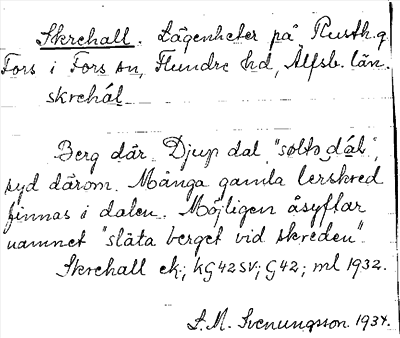 Skrehall. Lägenheter på Rusth.g
Fors i Fors sn, Flundre hd, Älfsb. län.
skrehál
Berg där. Djup dal, "sølto dál",
syd därom. Många gamla lerskred
finnas i dalen. Möjligen åsyftar
namnet "släta berget vid skreden".
Skrehall ek.; KG42SV; G42; ml 1932.
S.M. Svenungsson. 1934.